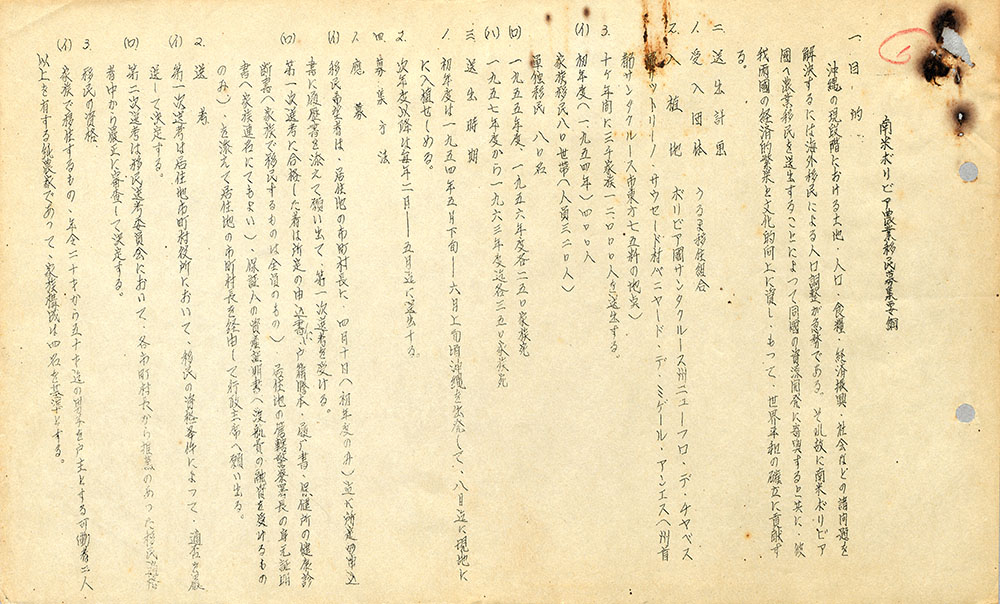 南米ボリビア農業移民募集要綱
一、目的
沖縄の現段階における土地・人口・食糧・経済振興・社会などの諸問題を
解決するには海外移民による人口調整が急務である。それ故に南米ボリビア
国へ農業移民を送出することによつて同国の資源開発に寄与すると共に、彼
我両国の経済的繁栄と文化的向上に資し、もつて、世界平和の確立に貢献す
る。
二、送出計画
1. 受入団体 うるま移住組合
2. 入植地 ボリビア國サンタクルース州ニューフロ・デ・チャベス
サットリーノ・サウセード村バニヤード・デ・ミゲール・アンエス(州首
都サンタクルース市東方七五粁の地点)
3. 十ケ年間に三千家族一二〇〇〇人を送出する。
(イ) 初年度(一九五四年)四〇〇人
家族移民八〇世帯(人員三二〇人)
単独移民 八〇名
(ロ) 一九五五年度、一九五六年度各二五〇家族宛
(ハ) 一九五七年度から一九六三年度迄各三五〇家族宛
三、送出時期
1. 初年度は一九五四年五月下旬――六月上旬頃沖縄を出発して、八月迄に現地に
に入植せしめる。
2. 次年度以降は毎年二月――五月迄に送出する。
四、募集方法
1. 應募
(イ) 移民希望者は、居住地の市町村長に、四月十日(初年度のみ)迄に所定の申込
書に履歴書を添えて願い出て、第一次選考を受ける。
(ロ) 第一次選考に合格した者は所定の申込書に、戸籍謄本・履歴書・保健所の健康診
断書(家族で移民するものは全員のもの)、居住地の管轄警察署長の身元証明
書(家族連名にてもよい)、保証人の資産証明書(渡航費の融資を受けるもの
のみ)、を添えて居住地の市町村長を経由して行政主席へ願い出る。
2. 選考
(イ) 第一次選考は居住地市町村役所において、移民の資格条件によつて、適否を厳
選して決定する。
(ロ) 第二次選考は移民選考委員会において、各市町村長から推薦のあつた移民適格
者中から厳正に審査して決定する。
3. 移民の資格
(イ) 家族で移住するもの、年令二十才から五十才迄の男子を戸主とする可働者二人
以上を有する純農家であつて、家族構成は四名を基準とする。